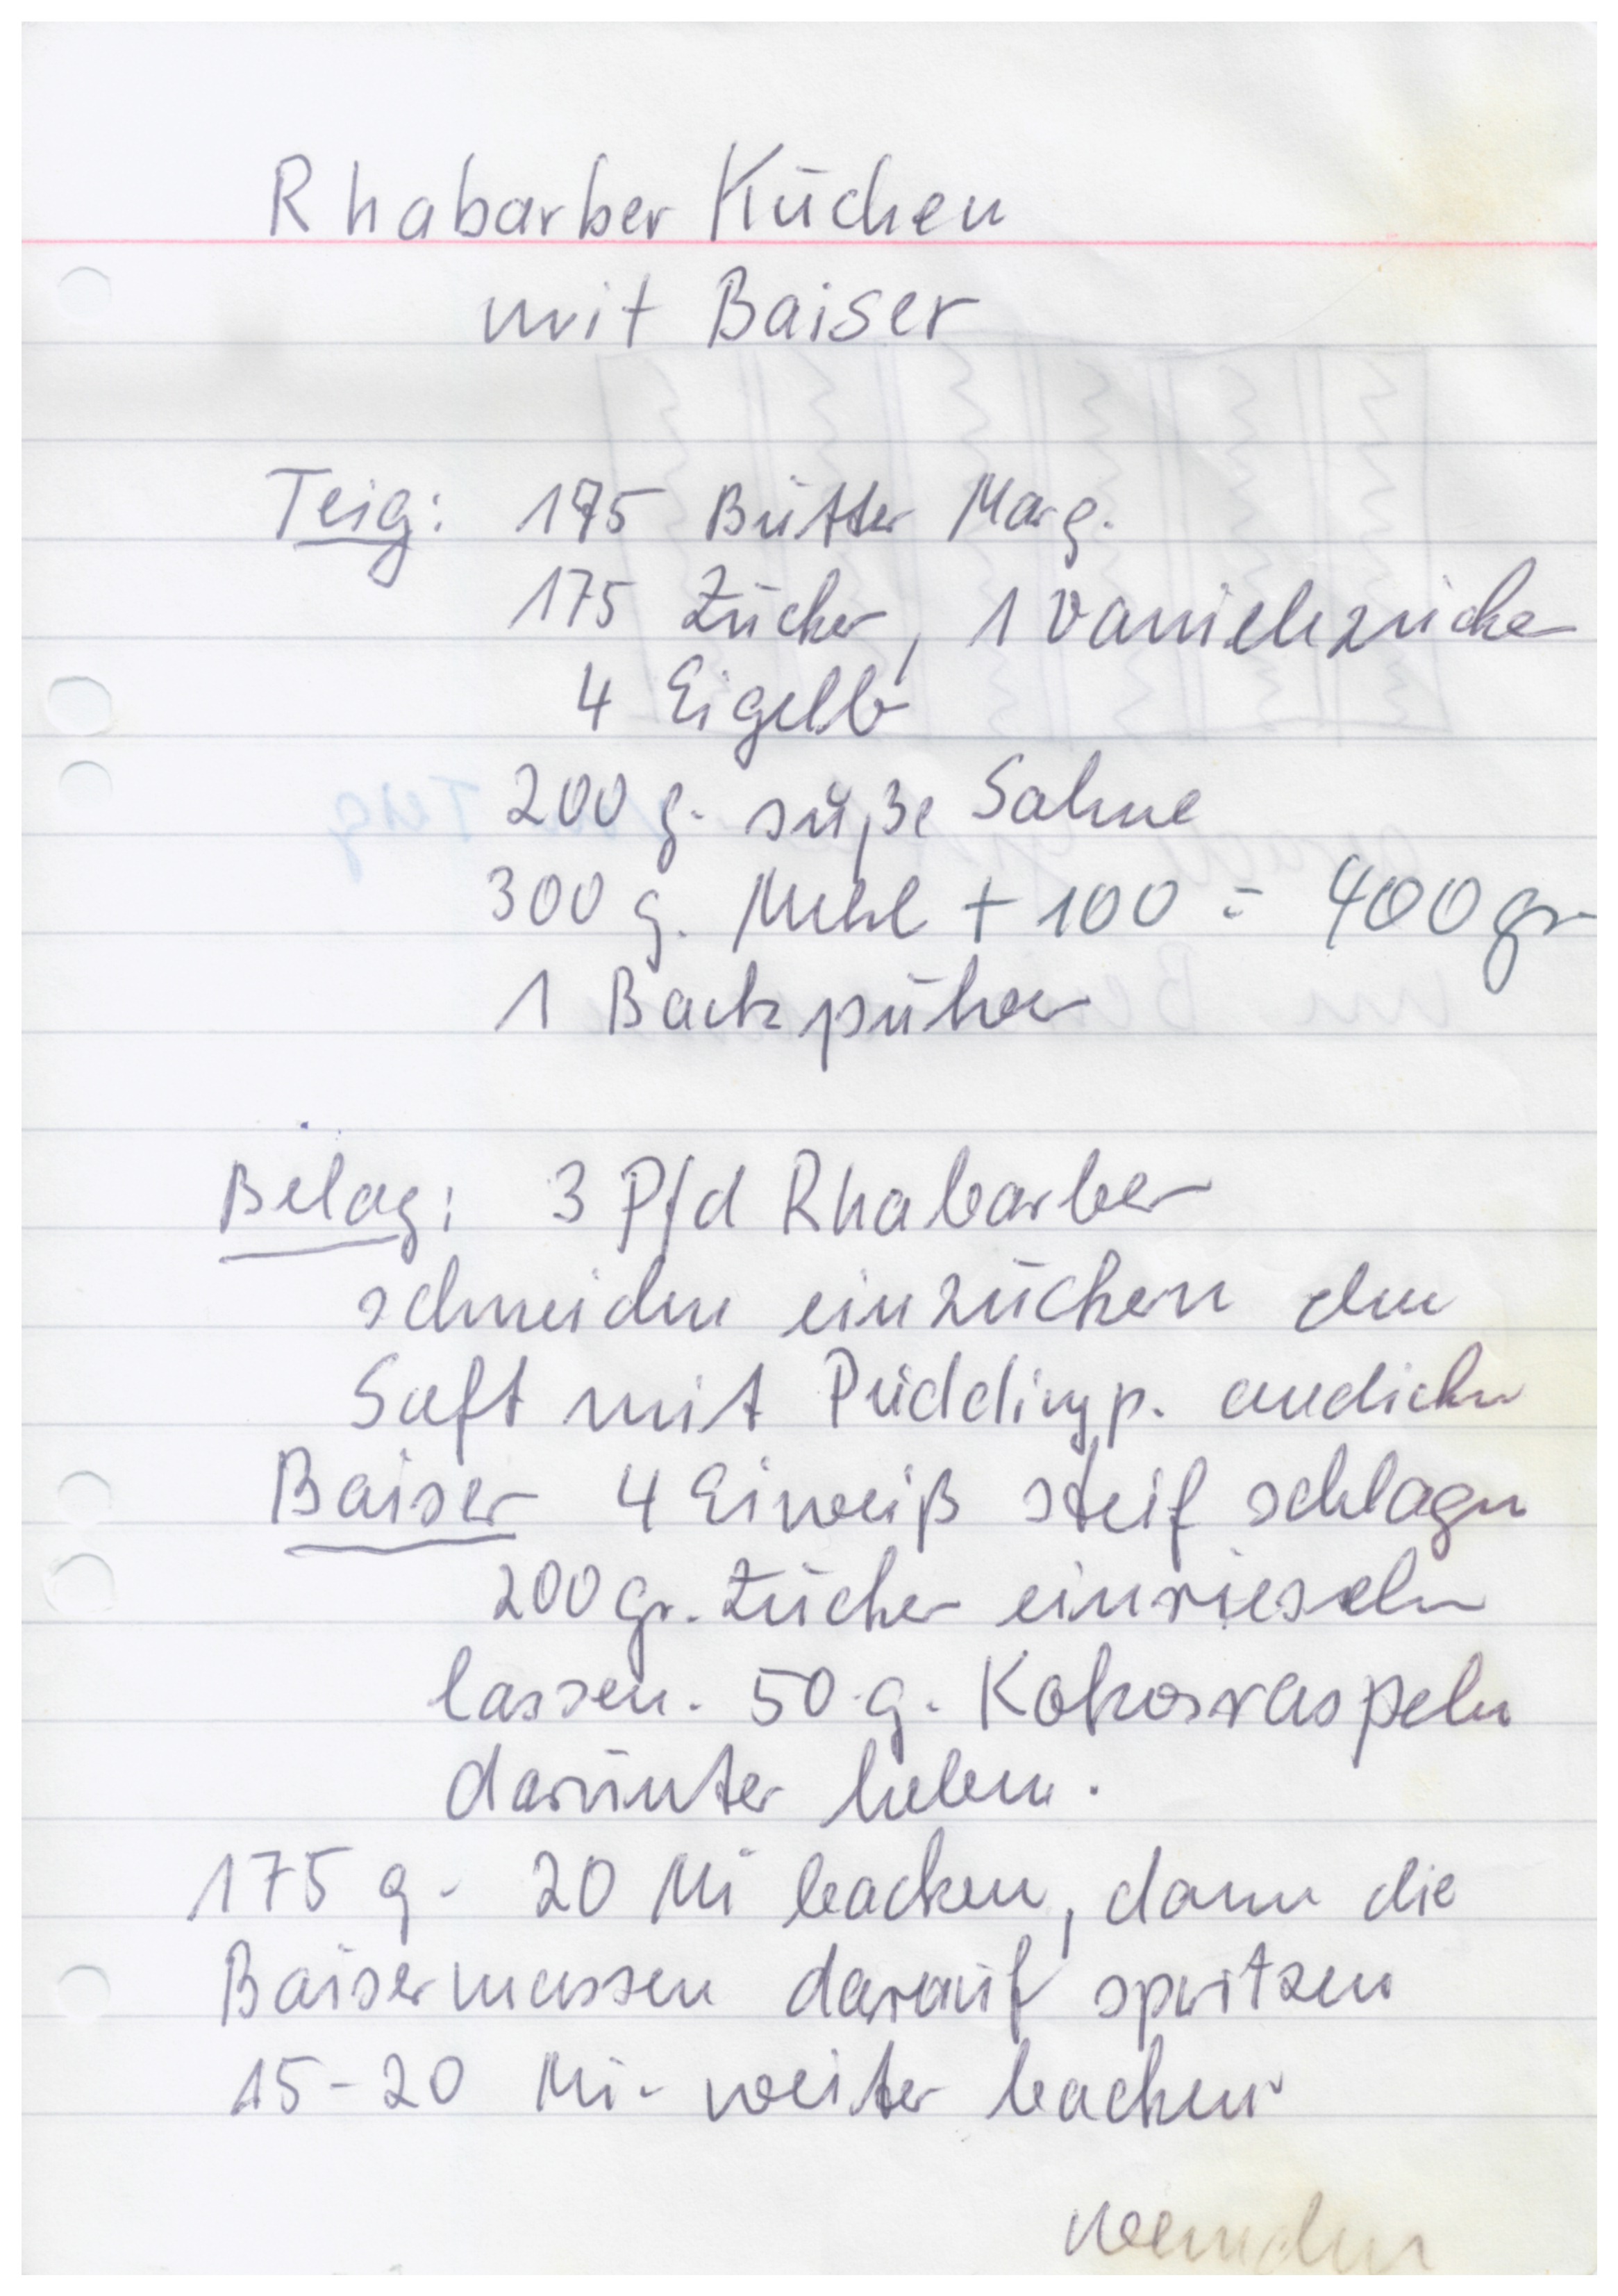 Rhabarber Kuchen
mit Baiser
Teig: 175 Butter Marg.
175 Zucker, 1 Vanielezucker
4 Eigelb
200 g. süße Sahne
300 g. Mehl + 100 = 400 gr
1 Backpulver
Belag: 3 Pfd Rhabarber
schneiden einzuckern den
Saft mit Puddingp. andicken
Baiser 4 Eiweiß steif schlagen
200 gr. Zucker einrieseln
lassen. 50 g. Kokosraspeln
darunter heben.
175 g - 20 Mi backen, dann die
Baisermassen darauf spritzen
15-20 Mi- weiter backen
wenden